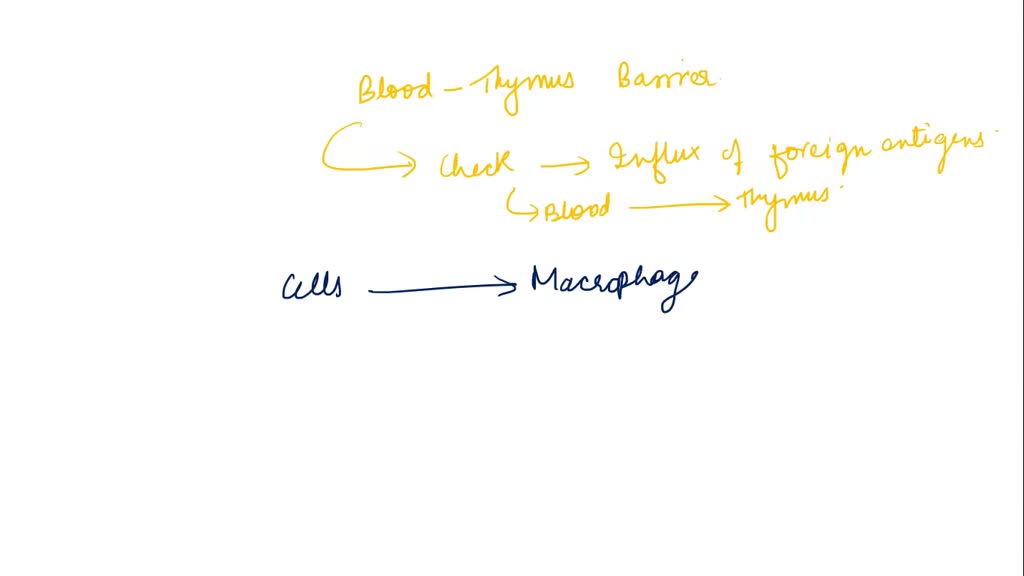 Blood - Thymus Barrier
Check → Influx of foreign antigens.
Blood → Thymus.
Cells → Macrophage